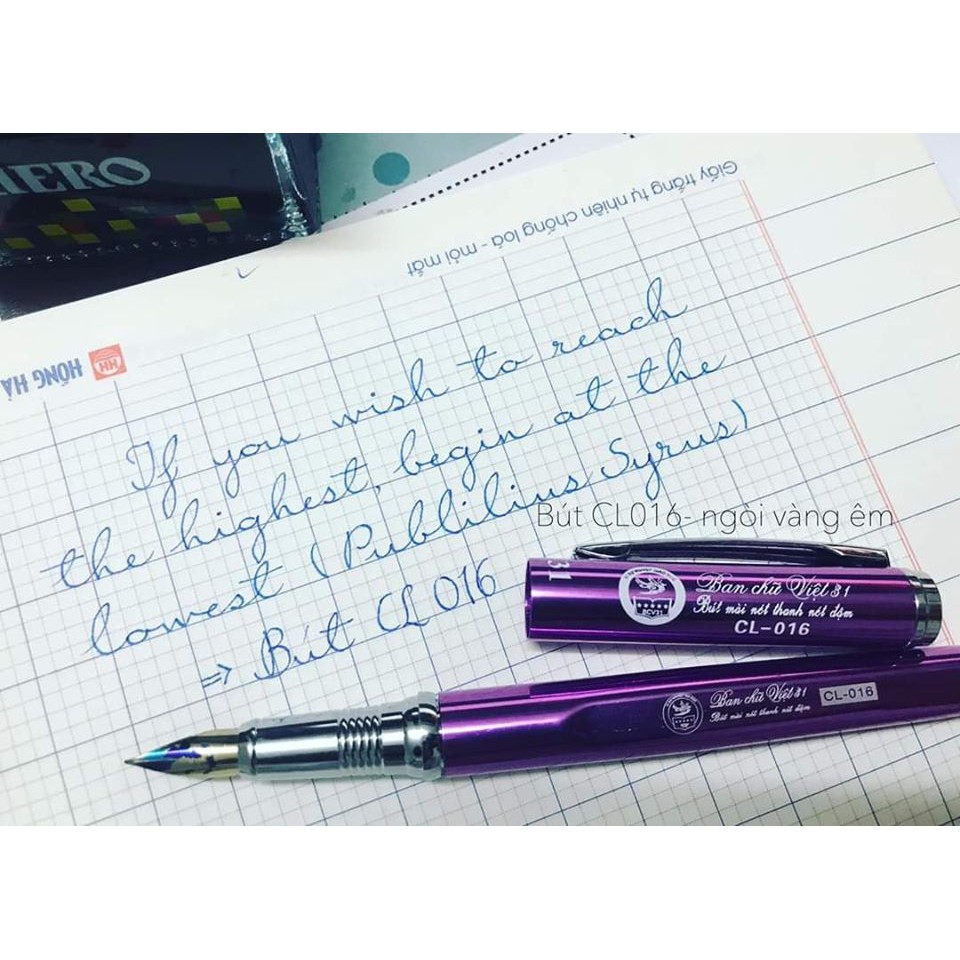 HERO
Giấy trắng tự nhiên chống loá - mỏi mắt
HỒNG HÀ
HH
If you wish to reach
the highest, begin at the
lowest (Publilius Syrus)
⇒ Bút CL 016
Bút CL016- ngòi vàng êm
31
BCV31
Ban chữ Việt 31
Bút mài nét thanh nét đậm
CL-016
Ban chữ Việt 31
Bút mài nét thanh nét đậm
CL-016